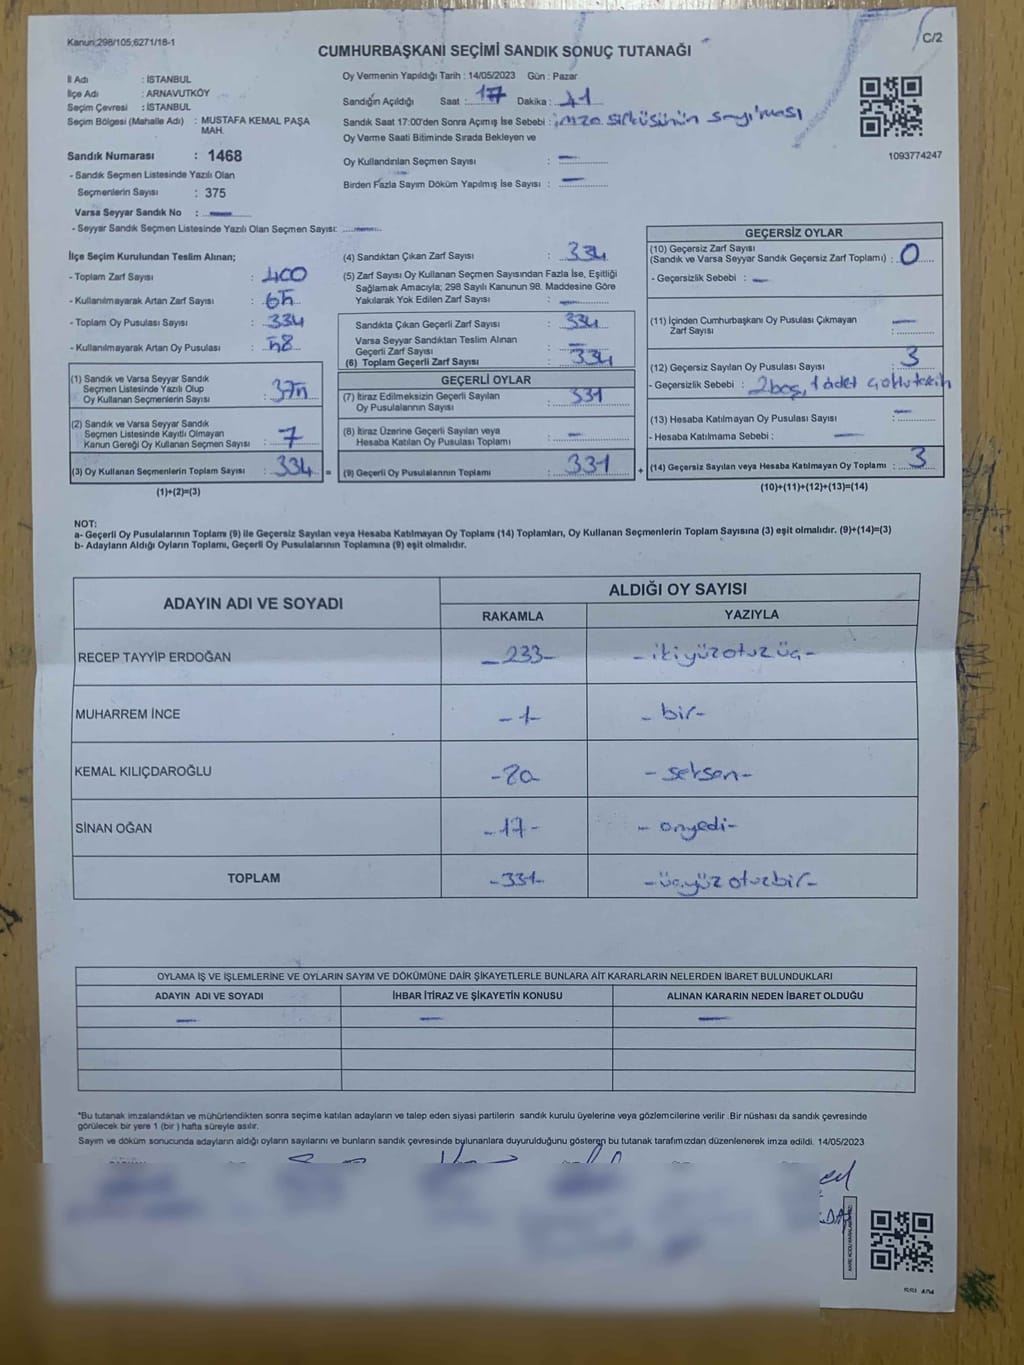 Kanun:298/105;6271/18-1
C/2
CUMHURBAŞKANI SEÇİMİ SANDIK SONUÇ TUTANAĞI
İl Adı : İSTANBUL
İlçe Adı : ARNAVUTKÖY
Seçim Çevresi : İSTANBUL
Seçim Bölgesi (Mahalle Adı) : MUSTAFA KEMAL PAŞA
MAH.
Sandık Numarası : 1468
- Sandık Seçmen Listesinde Yazılı Olan
Seçmenlerin Sayısı : 375
Varsa Seyyar Sandık No : —
- Seyyar Sandık Seçmen Listesinde Yazılı Olan Seçmen Sayısı: —
Oy Vermenin Yapıldığı Tarih : 14/05/2023 Gün : Pazar
Sandığın Açıldığı Saat : 17 Dakika : 41
Sandık Saat 17:00'den Sonra Açımış İse Sebebi : imza sirküsünün sayılması
Oy Verme Saati Bitiminde Sırada Bekleyen ve
Oy Kullandırılan Seçmen Sayısı : —
Birden Fazla Sayım Döküm Yapılmış İse Sayısı : —
1093774247
İlçe Seçim Kurulundan Teslim Alınan;
- Toplam Zarf Sayısı : 400
- Kullanılmayarak Artan Zarf Sayısı :
- Toplam Oy Pusulası Sayısı : 334
- Kullanılmayarak Artan Oy Pusulası :
(1) Sandık ve Varsa Seyyar Sandık
Seçmen Listesinde Yazılı Olup
Oy Kullanan Seçmenlerin Sayısı :
(2) Sandık ve Varsa Seyyar Sandık
Seçmen Listesinde Kayıtlı Olmayan
Kanun Gereği Oy Kullanan Seçmen Sayısı : 7
(3) Oy Kullanan Seçmenlerin Toplam Sayısı : 334
(1)+(2)=(3)
(4) Sandıktan Çıkan Zarf Sayısı : 334
(5) Zarf Sayısı Oy Kullanan Seçmen Sayısından Fazla İse, Eşitliği
Sağlamak Amacıyla; 298 Sayılı Kanunun 98. Maddesine Göre
Yakılarak Yok Edilen Zarf Sayısı : —
Sandıkta Çıkan Geçerli Zarf Sayısı : 334
Varsa Seyyar Sandıktan Teslim Alınan
Geçerli Zarf Sayısı : —
(6) Toplam Geçerli Zarf Sayısı : 334
GEÇERLİ OYLAR
(7) İtiraz Edilmeksizin Geçerli Sayılan
Oy Pusulalarının Sayısı : 331
(8) İtiraz Üzerine Geçerli Sayılan veya
Hesaba Katılan Oy Pusulası Toplamı : —
= (9) Geçerli Oy Pusulalarının Toplamı : 331 +
GEÇERSİZ OYLAR
(10) Geçersiz Zarf Sayısı
(Sandık ve Varsa Seyyar Sandık Geçersiz Zarf Toplamı) : 0
- Geçersizlik Sebebi : —
(11) İçinden Cumhurbaşkanı Oy Pusulası Çıkmayan
Zarf Sayısı : —
(12) Geçersiz Sayılan Oy Pusulası Sayısı : 3
- Geçersizlik Sebebi : 2 boş, 1 adet
(13) Hesaba Katılmayan Oy Pusulası Sayısı : —
- Hesaba Katılmama Sebebi : —
(14) Geçersiz Sayılan veya Hesaba Katılmayan Oy Toplamı : 3
(10)+(11)+(12)+(13)=(14)
NOT:
a- Geçerli Oy Pusulalarının Toplamı (9) ile Geçersiz Sayılan veya Hesaba Katılmayan Oy Toplamı (14) Toplamları, Oy Kullanan Seçmenlerin Toplam Sayısına (3) eşit olmalıdır. (9)+(14)=(3)
b- Adayların Aldığı Oyların Toplamı, Geçerli Oy Pusulalarının Toplamına (9) eşit olmalıdır.
ADAYIN ADI VE SOYADI ALDIĞI OY SAYISI
RAKAMLA YAZIYLA
RECEP TAYYİP ERDOĞAN -233- -ikiyüzotuzüç-
MUHARREM İNCE -1- -bir-
KEMAL KILIÇDAROĞLU -80- -seksen-
SİNAN OĞAN -17- -onyedi-
TOPLAM -331- -üçyüzotuzbir-
OYLAMA İŞ VE İŞLEMLERİNE VE OYLARIN SAYIM VE DÖKÜMÜNE DAİR ŞİKAYETLERLE BUNLARA AİT KARARLARIN NELERDEN İBARET BULUNDUKLARI
ADAYIN ADI VE SOYADI İHBAR İTİRAZ VE ŞİKAYETİN KONUSU ALINAN KARARIN NEDEN İBARET OLDUĞU
— — —
*Bu tutanak imzalandıktan ve mühürlendikten sonra seçime katılan adayların ve talep eden siyasi partilerin sandık kurulu üyelerine veya gözlemcilerine verilir .Bir nüshası da sandık çevresinde
görülecek bir yere 1 (bir ) hafta süreyle asılır.
Sayım ve döküm sonucunda adayların aldığı oyların sayılarını ve bunların sandık çevresinde bulunanlara duyurulduğunu gösteren bu tutanak tarafımızdan düzenlenerek imza edildi. 14/05/2023